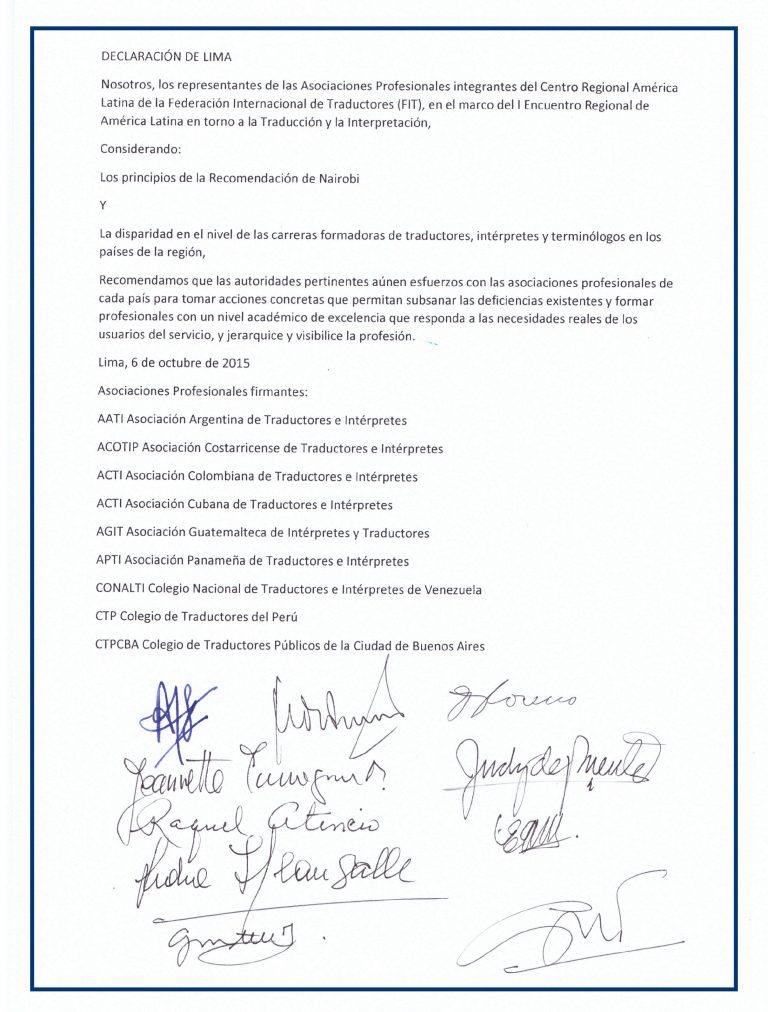 DECLARACIÓN DE LIMA
Nosotros, los representantes de las Asociaciones Profesionales integrantes del Centro Regional América
Latina de la Federación Internacional de Traductores (FIT), en el marco del I Encuentro Regional de
América Latina en torno a la Traducción y la Interpretación,
Considerando:
Los principios de la Recomendación de Nairobi
Y
La disparidad en el nivel de las carreras formadoras de traductores, intérpretes y terminólogos en los
países de la región,
Recomendamos que las autoridades pertinentes aúnen esfuerzos con las asociaciones profesionales de
cada país para tomar acciones concretas que permitan subsanar las deficiencias existentes y formar
profesionales con un nivel académico de excelencia que responda a las necesidades reales de los
usuarios del servicio, y jerarquice y visibilice la profesión.
Lima, 6 de octubre de 2015
Asociaciones Profesionales firmantes:
AATI Asociación Argentina de Traductores e Intérpretes
ACOTIP Asociación Costarricense de Traductores e Intérpretes
ACTI Asociación Colombiana de Traductores e Intérpretes
ACTI Asociación Cubana de Traductores e Intérpretes
AGIT Asociación Guatemalteca de Intérpretes y Traductores
APTI Asociación Panameña de Traductores e Intérpretes
CONALTI Colegio Nacional de Traductores e Intérpretes de Venezuela
CTP Colegio de Traductores del Perú
CTPCBA Colegio de Traductores Públicos de la Ciudad de Buenos Aires
Jeannette
Raquel Atencio